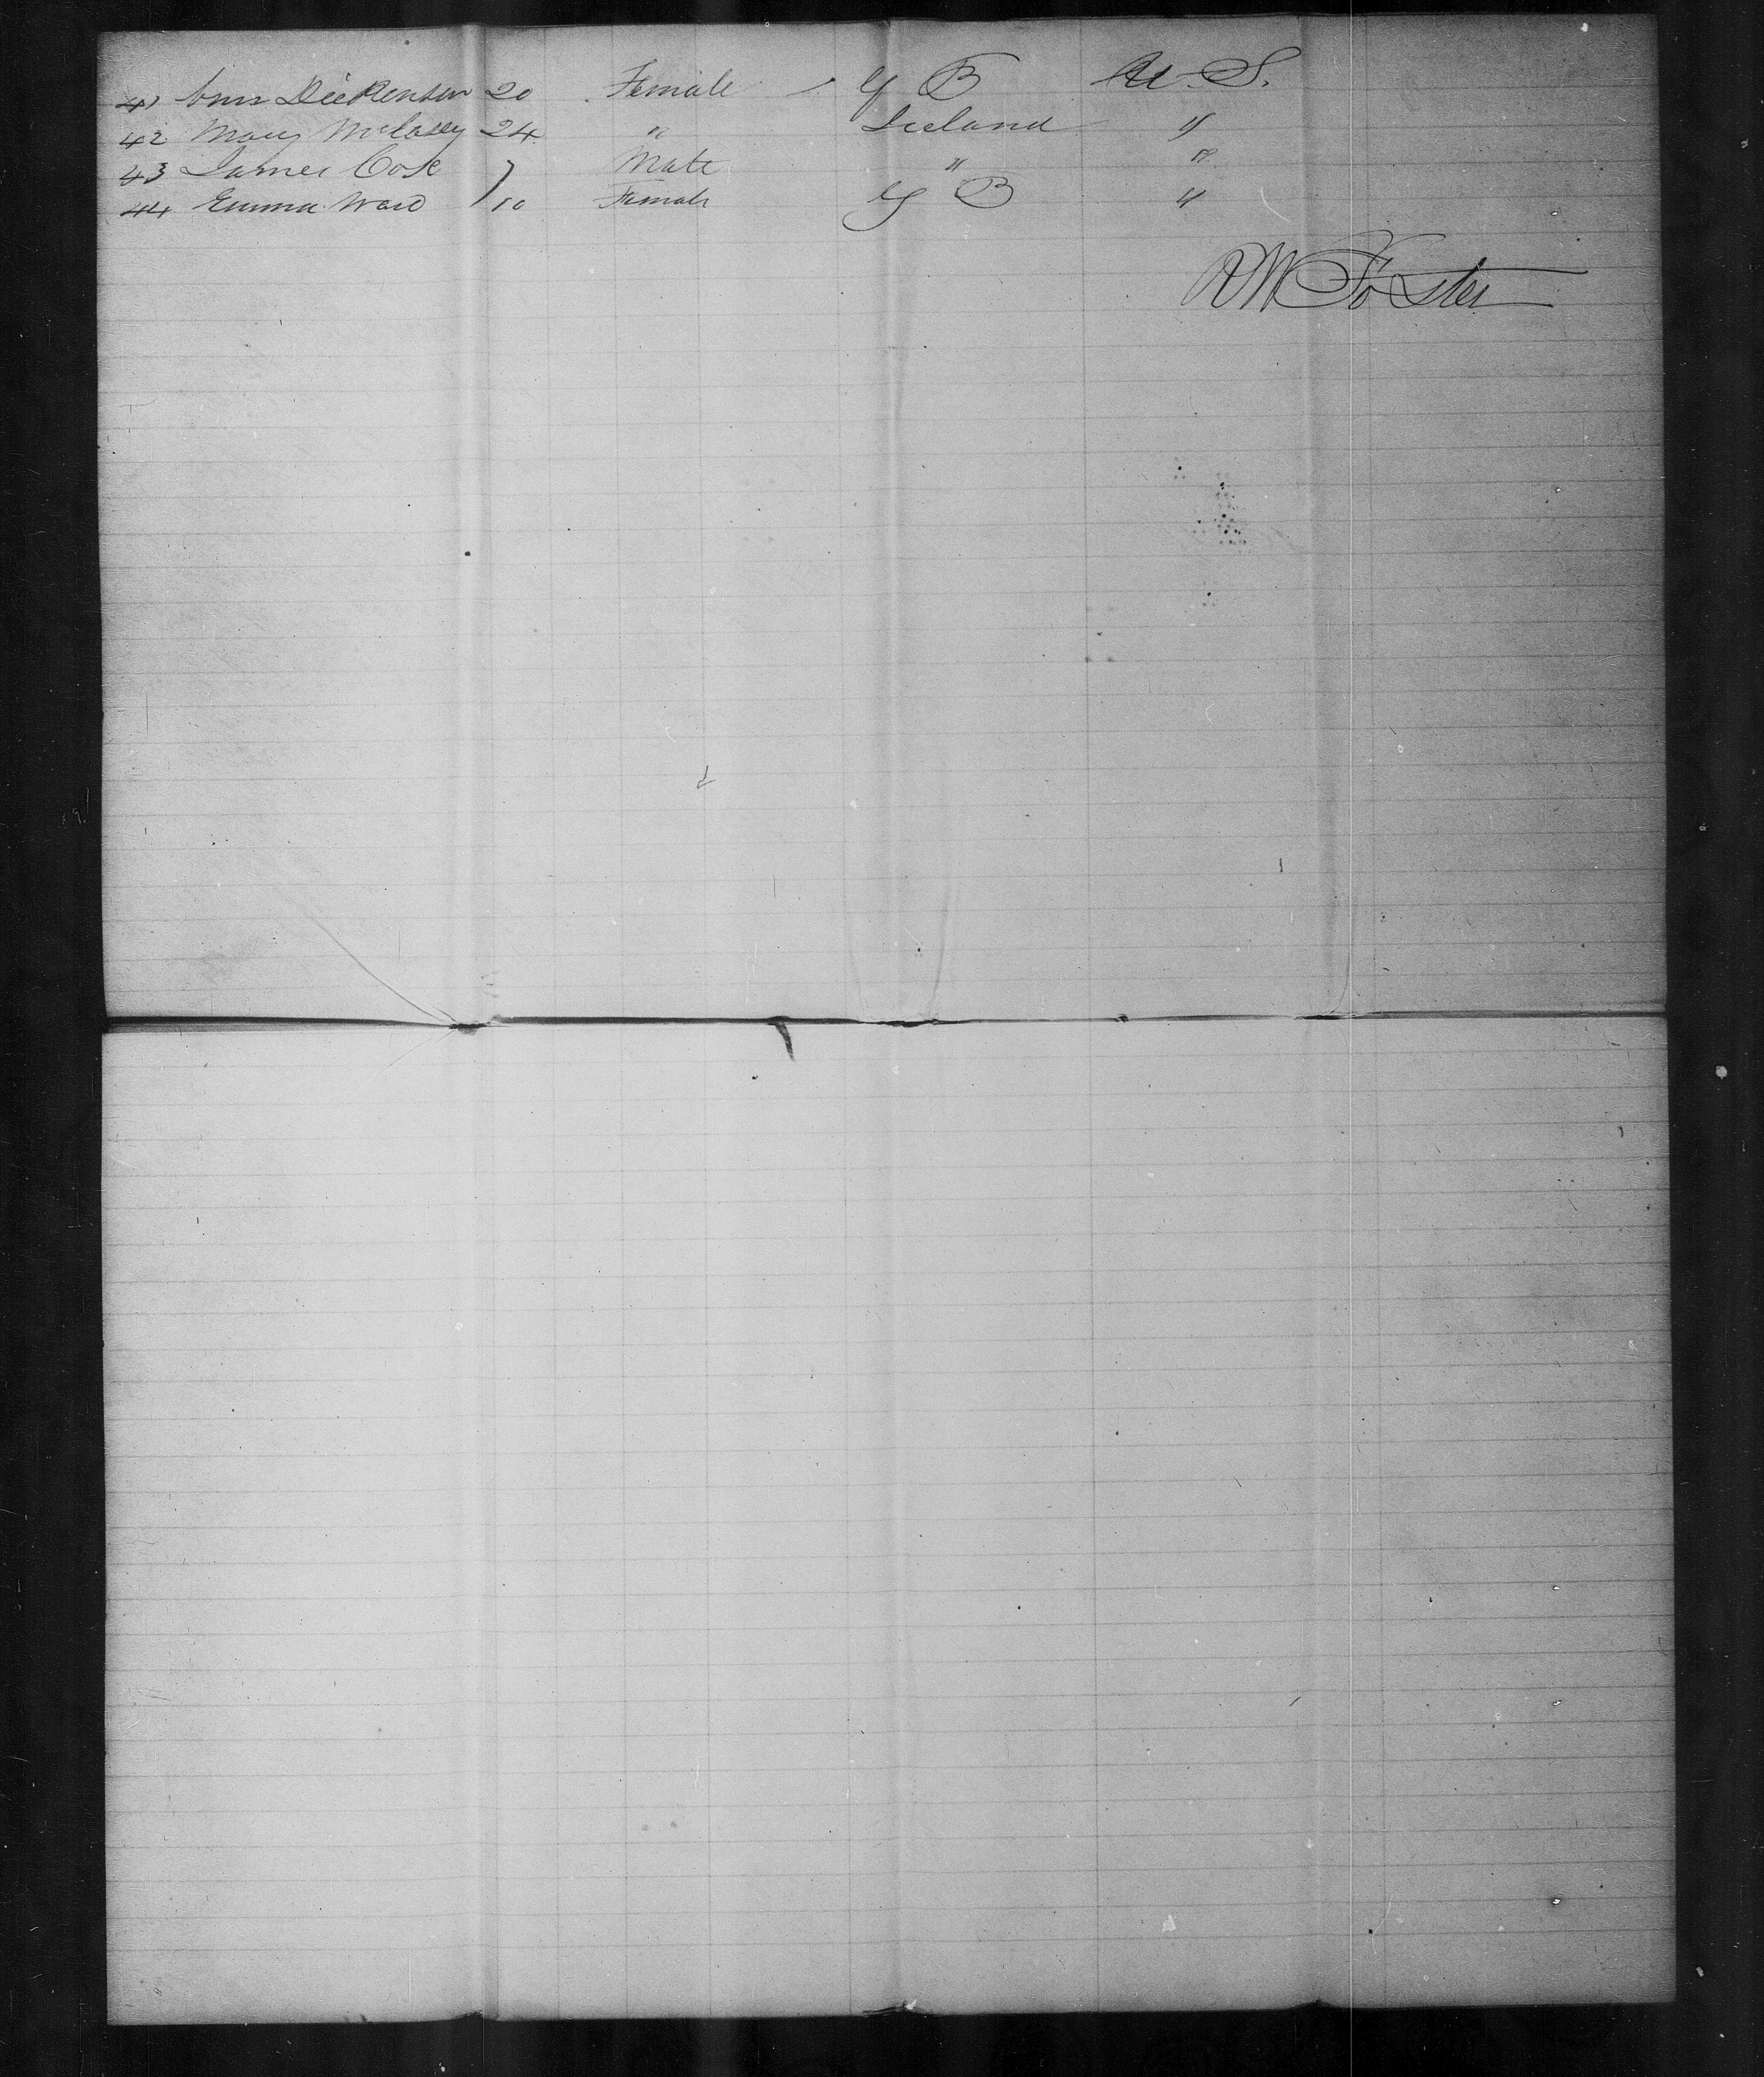 41 Ann Dickenson 20 Female G B U. S.
42 Mary McCasey 24 " Ireland "
43 James Cose 7 Male " "
44 Emma Ward 10 Female G B "
R W Foster